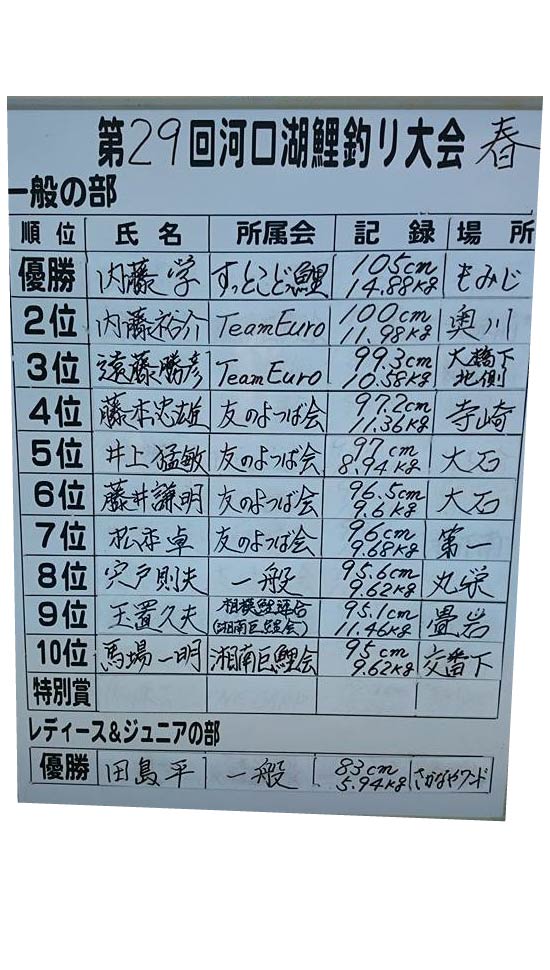 第29回河口湖鯉釣り大会 春
一般の部
順位 氏名 所属会 記録 場所
優勝 内藤 学 すっとこど鯉 105cm 14.88kg もみじ
2位 内藤裕介 TeamEuro 100cm 11.98kg 奥川
3位 遠藤勝彦 TeamEuro 99.3cm 10.58kg 大橋下 北側
4位 藤本忠雄 友のよつば会 97.2cm 11.36kg 寺崎
5位 井上猛敏 友のよつば会 97cm 8.94kg 大石
6位 藤井謙明 友のよつば会 96.5cm 9.6kg 大石
7位 松本 卓 友のよつば会 96cm 9.68kg 第一
8位 宍戸則夫 一般 95.6cm 9.62kg 丸栄
9位 玉置久夫 相模鯉連合 (湘南巨鯉会) 95.1cm 11.46kg 畳岩
10位 馬場一明 湘南巨鯉会 95cm 9.62kg 交番下
特別賞
レディース&ジュニアの部
優勝 田島 平 一般 83cm 5.94kg さかなやワンド